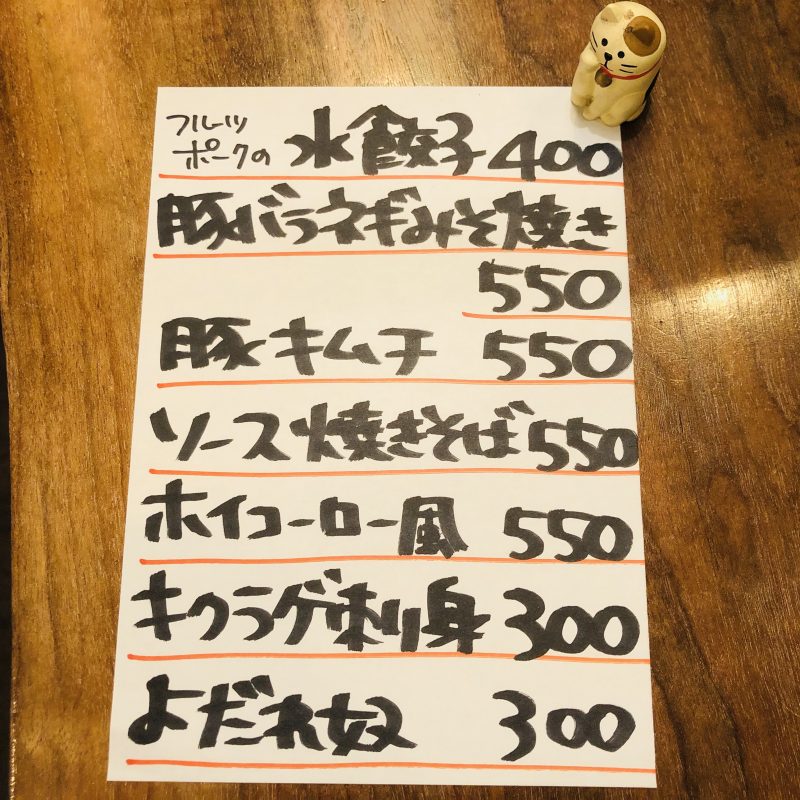 フルーツ
ポークの 水餃子 400
豚バラネギみそ焼き
550
豚キムチ 550
ソース焼きそば 550
ホイコーロー風 550
キクラゲ刺り身 300
よだれ奴 300